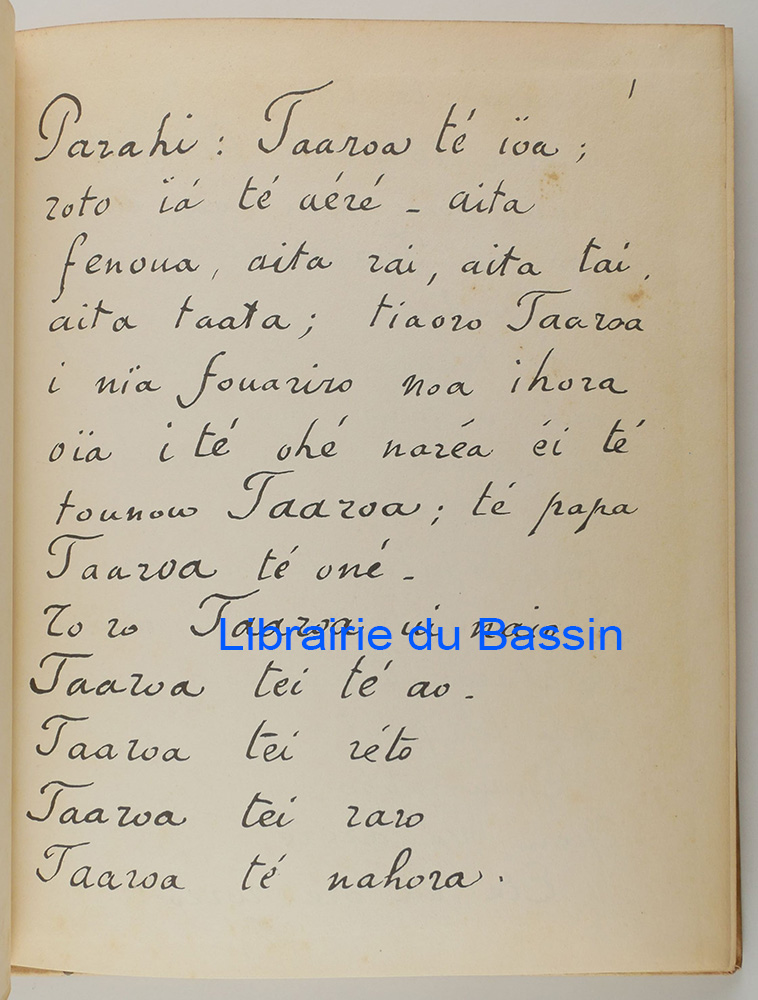 Parahi : Taaroa té ïoa ;
roto ïá té aéré _ aita
fenoua, aita rai, aita tai,
aita taata ; tiaoro Taaroa
i nïa fouariro noa ihora
oïa i té ohé naréa éi té
tounou Taaroa ; té papa
Taaroa té oné _
To ro Taaroa ii naio
Librairie du Bassin
Taaroa tei té ao _
Taaroa tei réto
Taaroa tei raro
Taaroa té nahora .